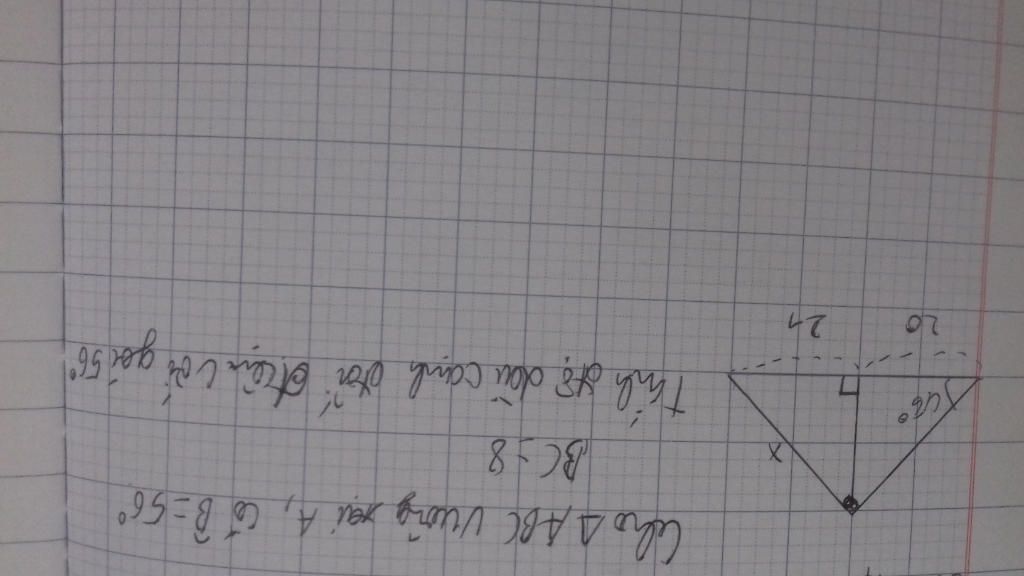 Cho Δ ABC vuông tại A, có B = 56°
BC = 8
Tính độ dài cạnh đối diện với góc 56°
x
46°
20
21